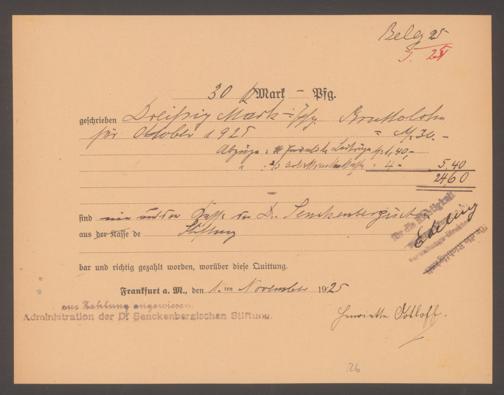 Beleg 25
S. 25
30 Mark – Pfg.
geschrieben Dreißig Mark – Pfg. Bruttolohn
für Oktober 1925 = M. 30.–
Abzüge: 1,40
" 4 –
5.40
24.60
sind aus der Kasse der Dr. Senckenbergischen
aus der Kasse de Stiftung
bar und richtig gezahlt worden, worüber diese Quittung.
Frankfurt a. M., den 1. ten November 1925
zur Zahlung angewiesen.
Administration der Dr. Senckenbergischen Stiftung.
Henriette
26